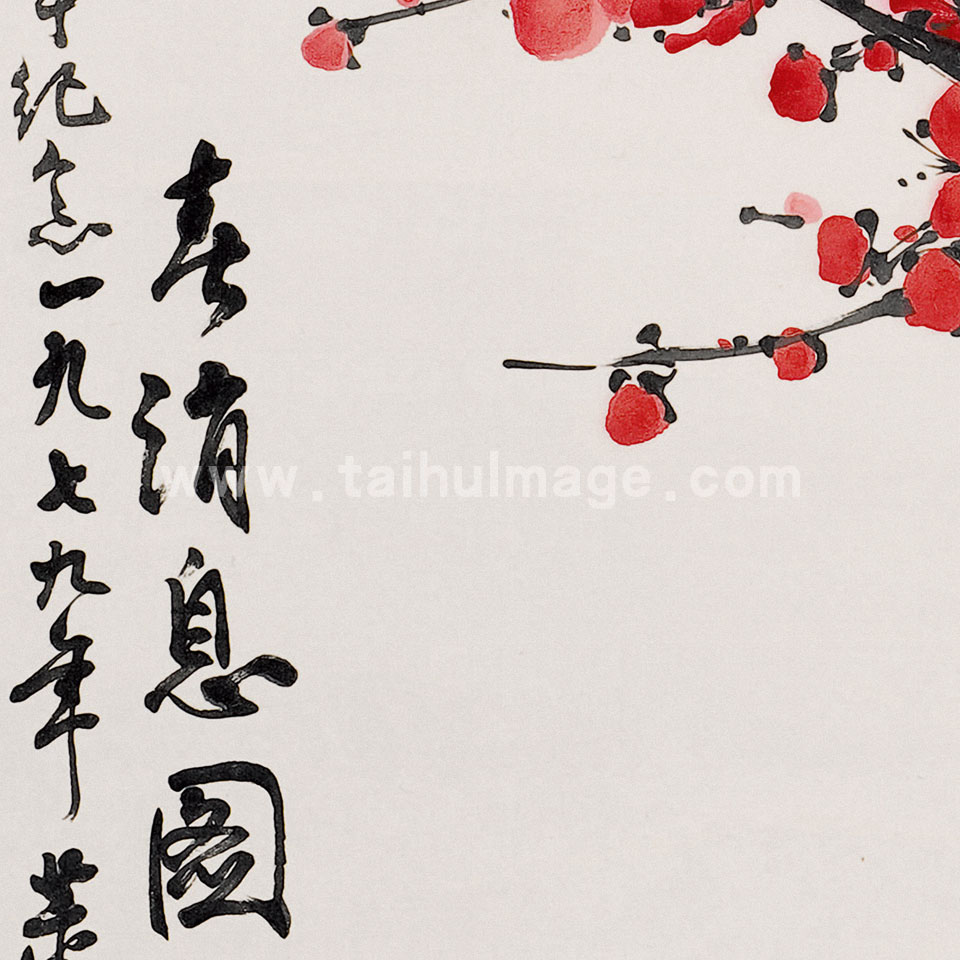 春消息图
纪念一九七九年
www.taihuImage.com